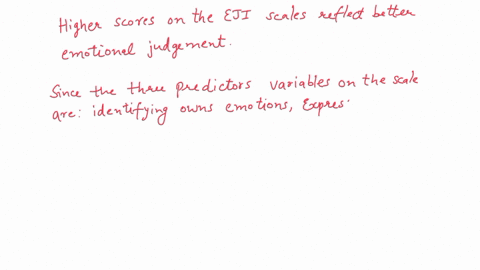 Higher scores on the EJI scales reflect better
emotional judgement.
Since the three predictors variables on the scale
are: identifying owns emotions, Expres